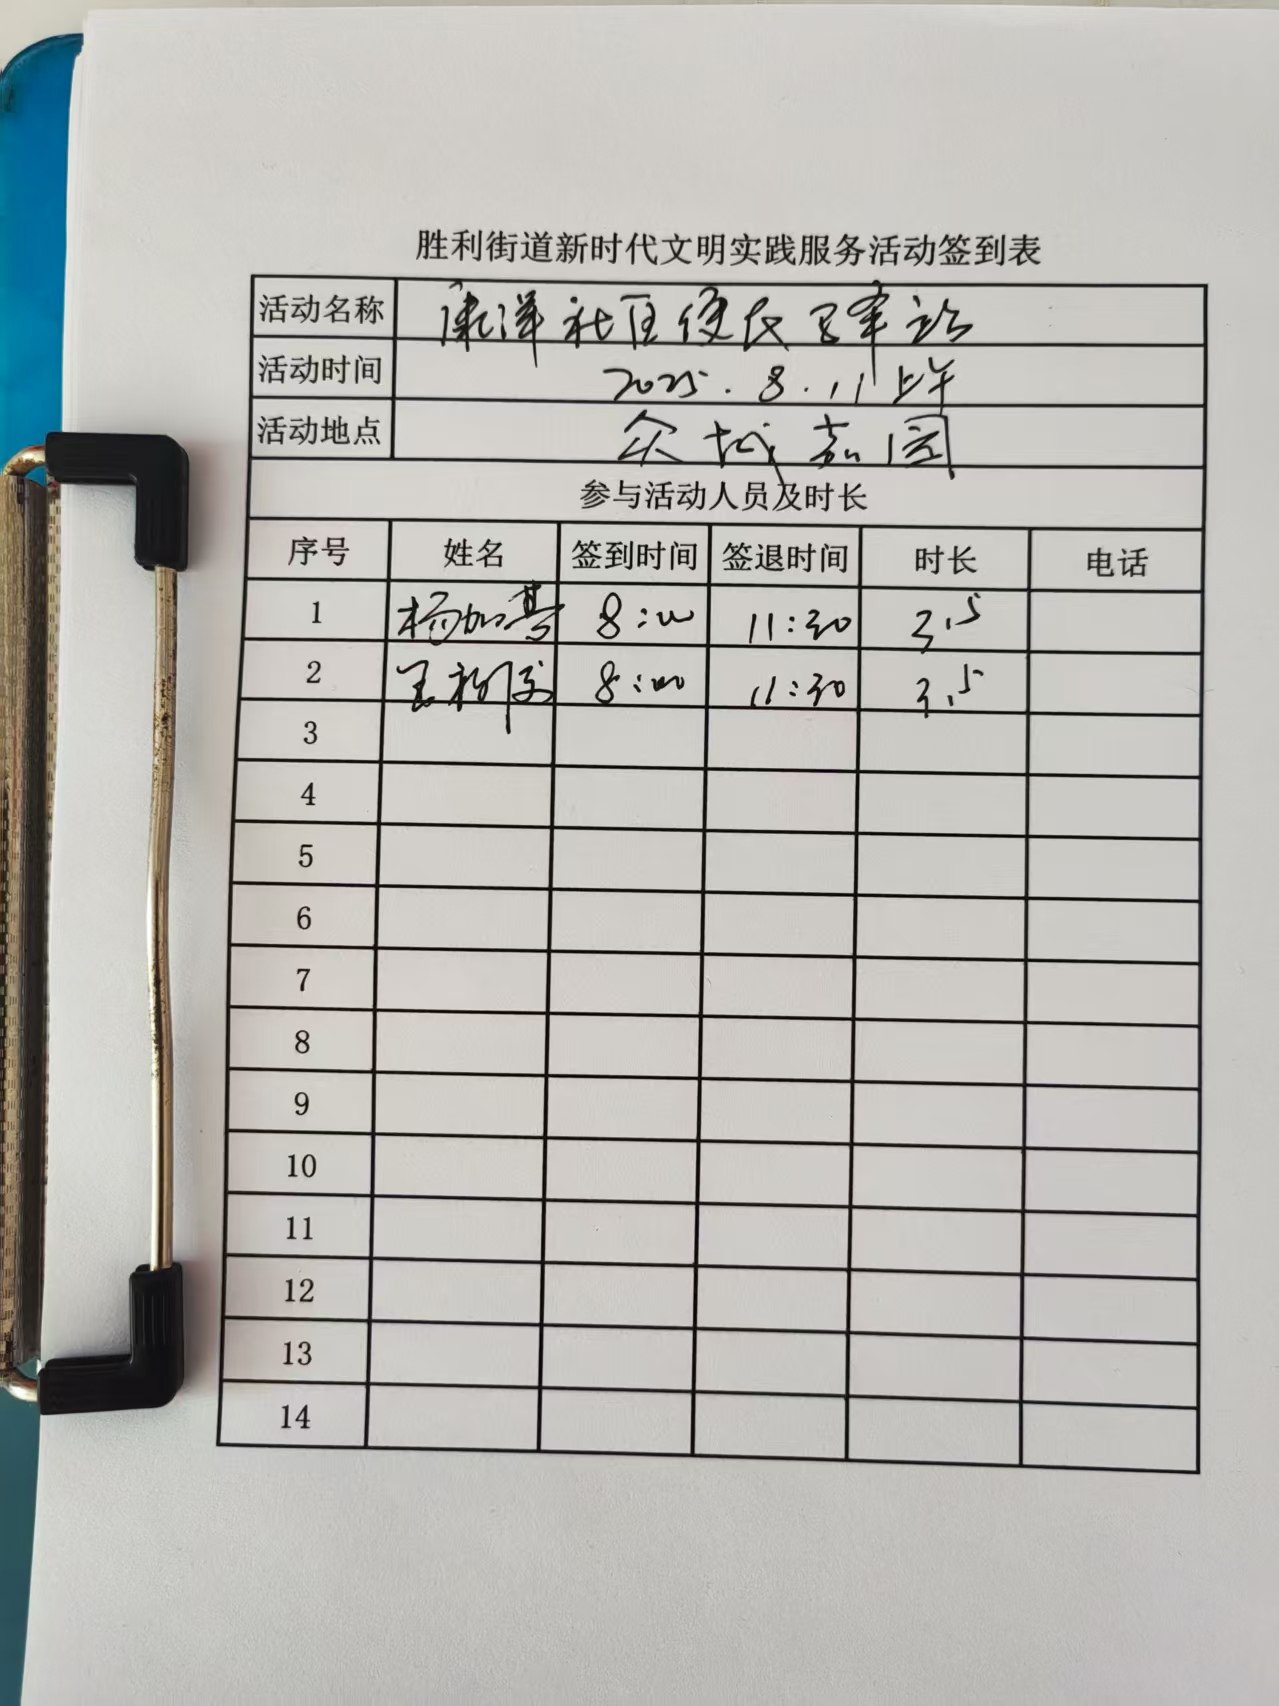 胜利街道新时代文明实践服务活动签到表
活动名称 康洋社区便民驿站
活动时间 2025.8.11上午
活动地点 众城嘉园
参与活动人员及时长
序号 姓名 签到时间 签退时间 时长 电话
1 杨加 8:00 11:30 3.5
2 王 8:00 11:30 3.5
3
4
5
6
7
8
9
10
11
12
13
14